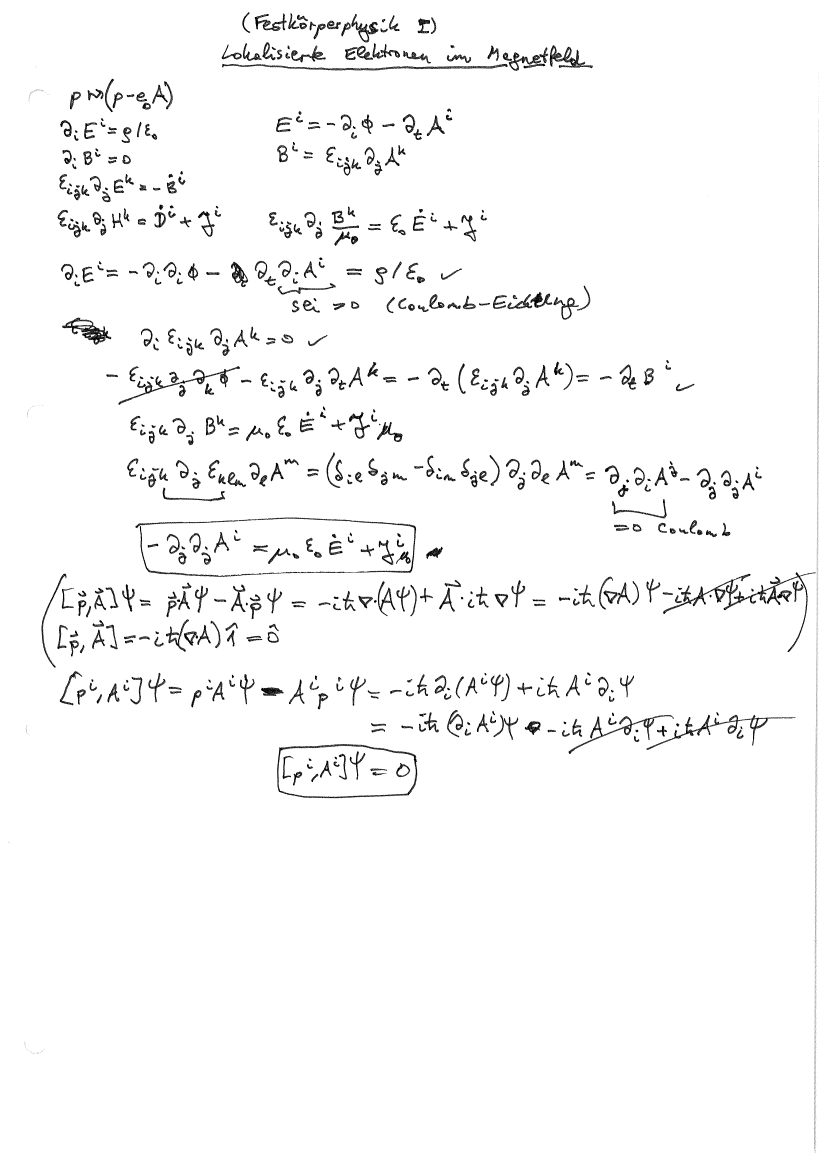 (Festkörperphysik I)
Lokalisierte Elektronen im Magnetfeld
p ↦ (p-e₀A)
∂ᵢEⁱ = ρ/ε₀    Eⁱ = -∂ᵢϕ - ∂ₜAⁱ
∂ᵢBⁱ = 0    Bⁱ = εᵢⱼₖ∂ⱼAᵏ
εᵢⱼₖ∂ⱼEᵏ = -Ḃⁱ
εᵢⱼₖ∂ⱼHᵏ = Ḋⁱ + Jⁱ    εᵢⱼₖ∂ⱼ Bᵏ/μ₀ = ε₀Ėⁱ + Jⁱ
∂ᵢEⁱ = -∂ᵢ∂ᵢϕ - ∂ₜ∂ᵢAⁱ = ρ/ε₀ ✓
sei = 0 (Coulomb-Eichung)
∂ᵢεᵢⱼₖ∂ⱼAᵏ = 0 ✓
-εᵢⱼₖ∂ⱼ∂ₖϕ - εᵢⱼₖ∂ⱼ∂ₜAᵏ = -∂ₜ(εᵢⱼₖ∂ⱼAᵏ) = -∂ₜBⁱ ✓
εᵢⱼₖ∂ⱼBᵏ = μ₀ε₀Ėⁱ + Jⁱμ₀
εᵢⱼₖ∂ⱼεₖₑₘ∂ₑAᵐ = (δᵢₑδⱼₘ - δᵢₘδⱼₑ)∂ⱼ∂ₑAᵐ = ∂ⱼ∂ᵢAʲ - ∂ⱼ∂ⱼAⁱ
=0 Coulomb
-∂ⱼ∂ⱼAⁱ = μ₀ε₀Ėⁱ + Jⁱμ₀
([p⃗,A⃗]ψ = p⃗·A⃗ψ - A⃗·p⃗ψ = -iħ∇·(Aψ) + A⃗·iħ∇ψ = -iħ(∇A)ψ - iħA·∇ψ + iħA⃗∇ψ
[p⃗,A⃗] = -iħ(∇A)1̂ = 0̂)
[pⁱ,Aⁱ]ψ = pⁱAⁱψ - Aⁱpⁱψ = -iħ∂ᵢ(Aⁱψ) + iħAⁱ∂ᵢψ
= -iħ(∂ᵢAⁱ)ψ - iħAⁱ∂ᵢψ + iħAⁱ∂ᵢψ
[pⁱ,Aⁱ]ψ = 0